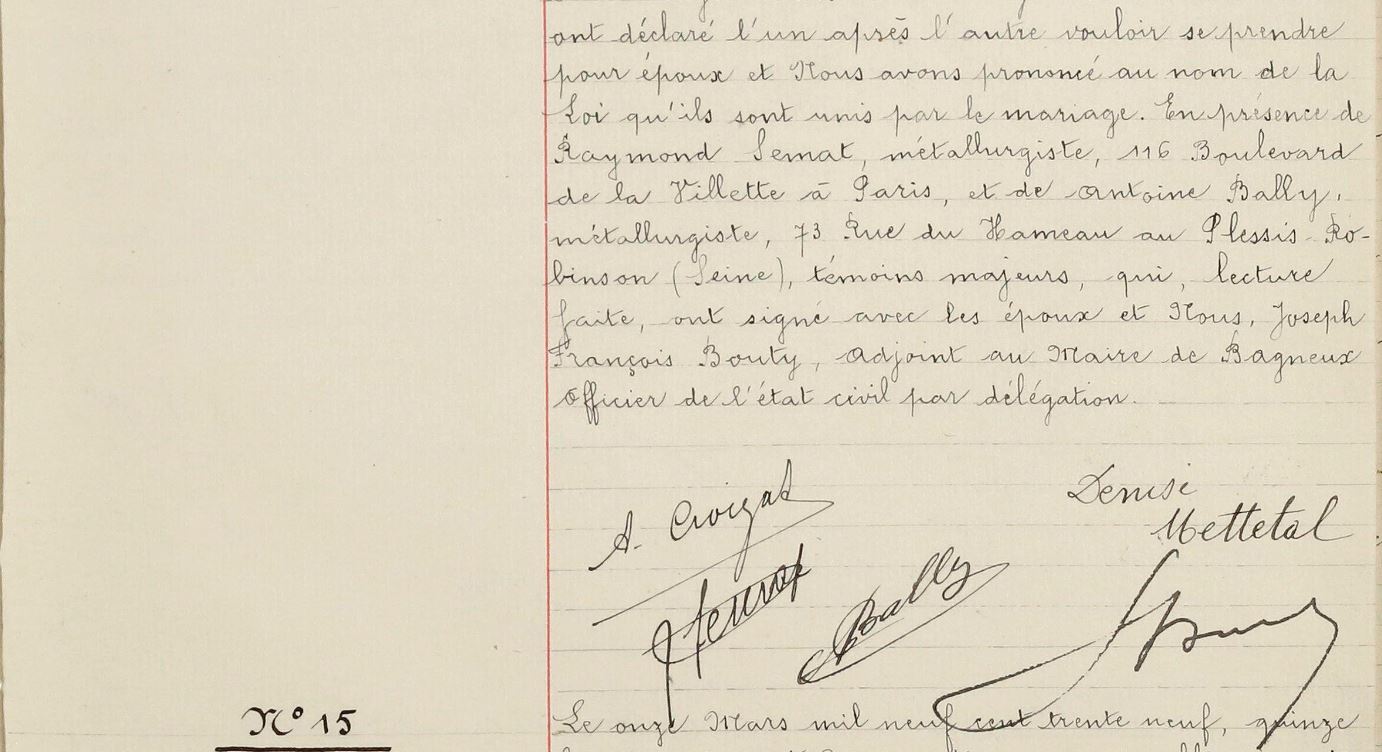 ont déclaré l'un après l'autre vouloir se prendre
pour époux et Nous avons prononcé au nom de la
Loi qu'ils sont unis par le mariage. En présence de
Raymond Semat, métallurgiste, 116 Boulevard
de la Villette à Paris, et de Antoine Bally,
métallurgiste, 73 Rue du Hameau au Plessis Ro-
binson (Seine), témoins majeurs, qui, lecture
faite, ont signé avec les époux et Nous, Joseph
François Bouty, Adjoint au Maire de Bagneux
Officier de l'état civil par délégation.
A. Croizat
Denise
Mettetal
Bally
N° 15
Le onze Mars mil neuf cent trente neuf, quinze